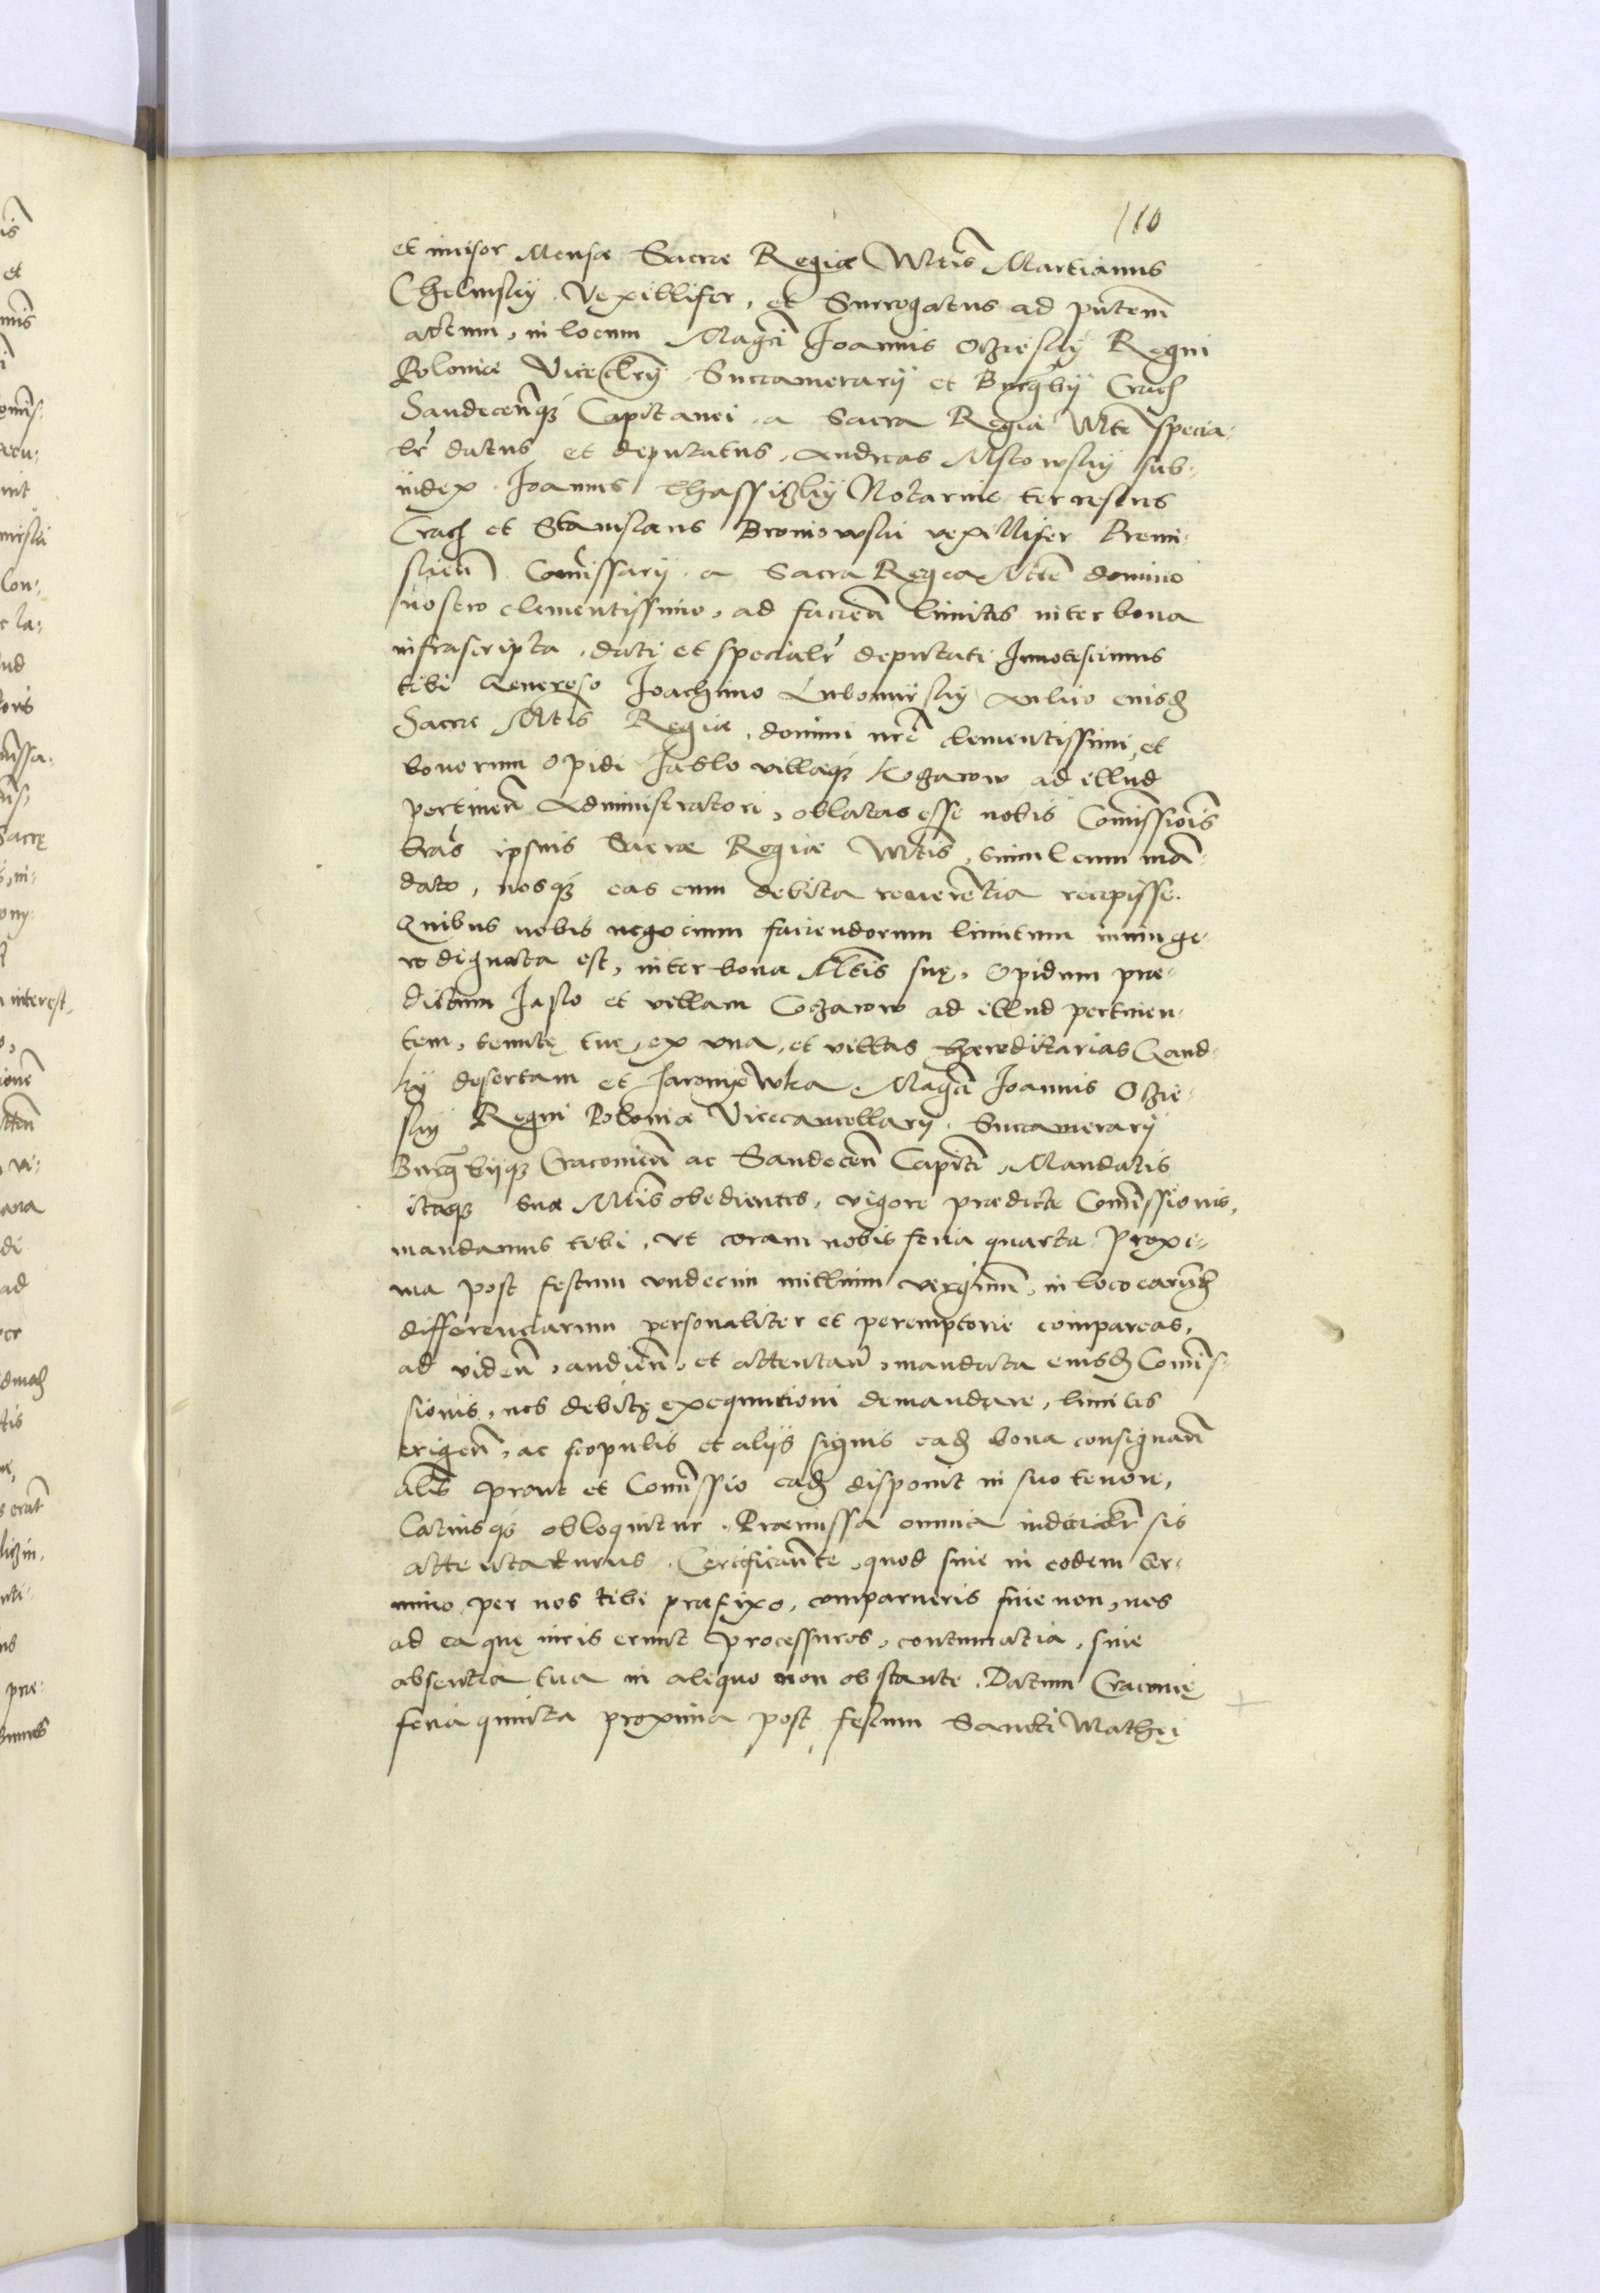 110
et incisor Mensæ Sacræ Regiæ Mtis Martianus
Chelmskÿ Vexillifer, et Surrogatus ad pntem
actum, in locum Magci Joannis Oczieskÿ Regni
Poloniæ Vicecllrÿ Succamerarÿ et Burgbÿ Crach
Sandecenq₃ Capitanei a Sacra Regia Mte specia-
lr datus et deputatus, Andreas Mstowskÿ sub-
iudex Joannes thassiczkÿ Notarius terrestris
Crach et Stanislaus Broniowski vexillifer Premi-
slien Comissarÿ a Sacra Regia Mte domino
nostro clementissimo, ad facien limites inter bona
infrascripta, dati et specialr deputati Innotescimus
tibi Generoso Joachimo Lubomirskÿ Aulico eiusd
Sacræ Mtis Regiæ, domini nri clementissimi, et
bonorum opidi Jaslo villæq₃ Kozarow ad illud
pertinen Administratori, oblatas esse nobis Comissionis
lras ipsius Sacræ Regiæ Mtis, simul cum man-
dato, nosq₃ eas cum debita reuerentia recepisse.
Quibus nobis negocium faciendorum limitum iniunge-
re dignata est, inter bona Mtis suę, Opidum præ-
dictum Jaslo et villam Cozarow ad illud pertinen-
tem, tenutę tuę, ex vna, et villas hæreditarias Gand-
ky desertam et Jaroniowka Magci Joannis Oczie-
skÿ Regni Poloniæ Vicecancellarÿ, Succamerarÿ
Burgbÿq₃ Cracouien ac Sandecen Capitei Mandatis
itaq₃ suæ Mtis obedientes, vigore prædictæ Comissionis,
mandamus tibi, vt coram nobis feria quarta proxi-
ma post festum vndecim millium virginum, in loco earund
differenciarum personaliter et peremptorie compareas,
ad viden, audien, et attentan, mandata eiusd Comis-
sionis, nos debitę exequutioni demandare, limites
erigen, ac scopulis et alÿs signis ead bona consignan
alis prout et Comissio ead disponit in suo tenore,
latiusq₃ obloquitur. Præmissa omnia iudicialr sis
attentaturus. Certificantes, quod siue in eodem ter-
mino per nos tibi præfixo, comparueris siue non, nos
ad ea quę iuris erunt processuros, contumatia, siue
absentia tua in aliquo non obstante. Datum Cracouię
feria quinta proxima post festum Sancti Mathęi